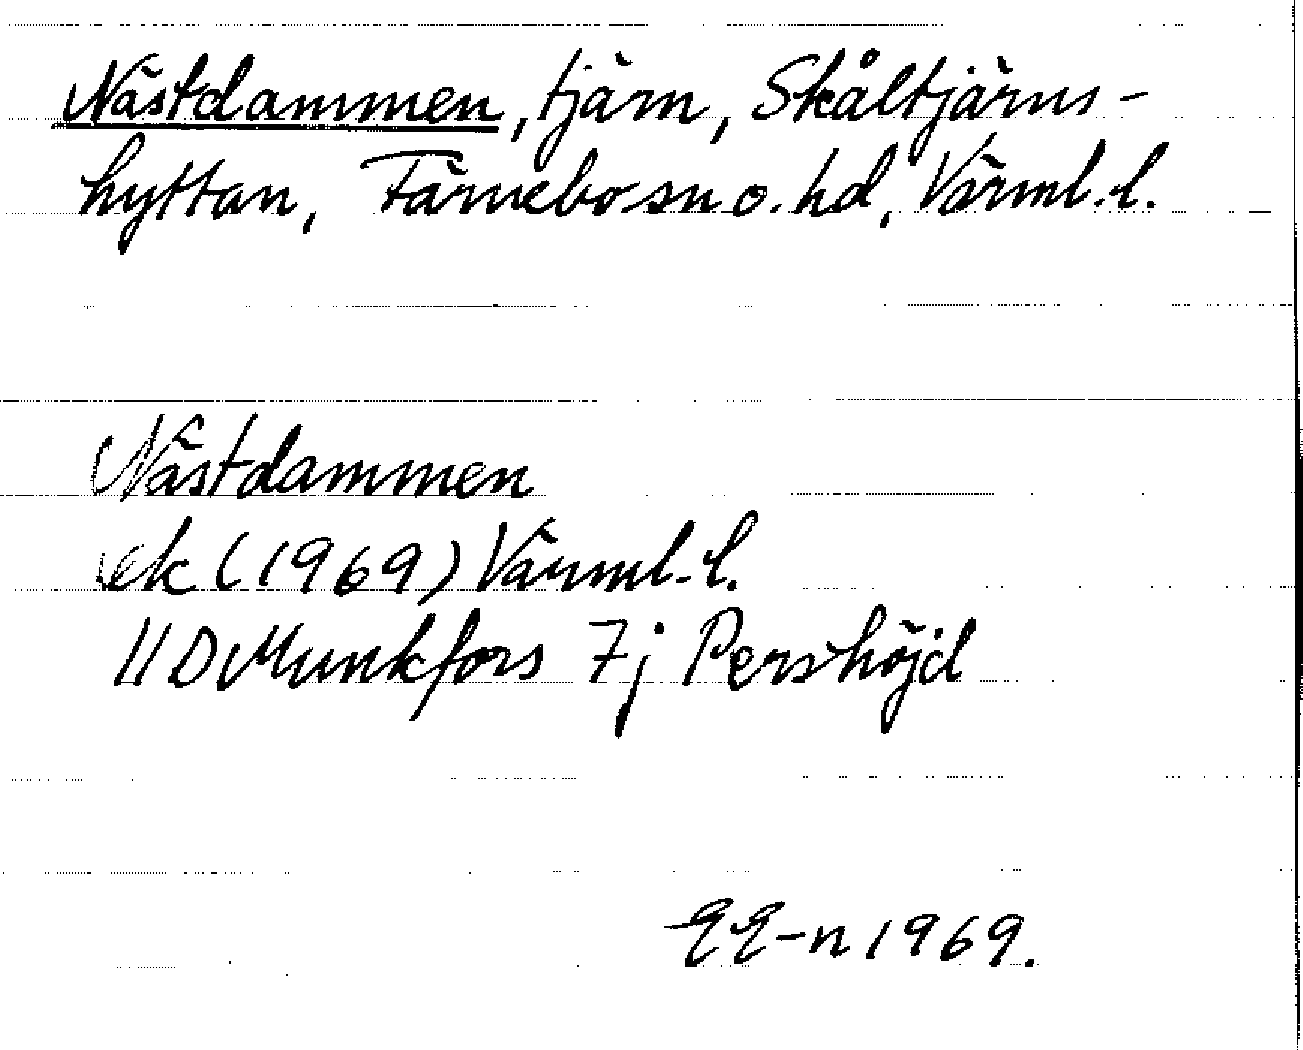 Nästdammen, tjärn, Skåltjärns-
hyttan, Färnebo sn o. hd, Värml. l.
Nästdammen
ek (1969) Värml. l.
11D Munkfors 7j Pershöjd
EE-n 1969.